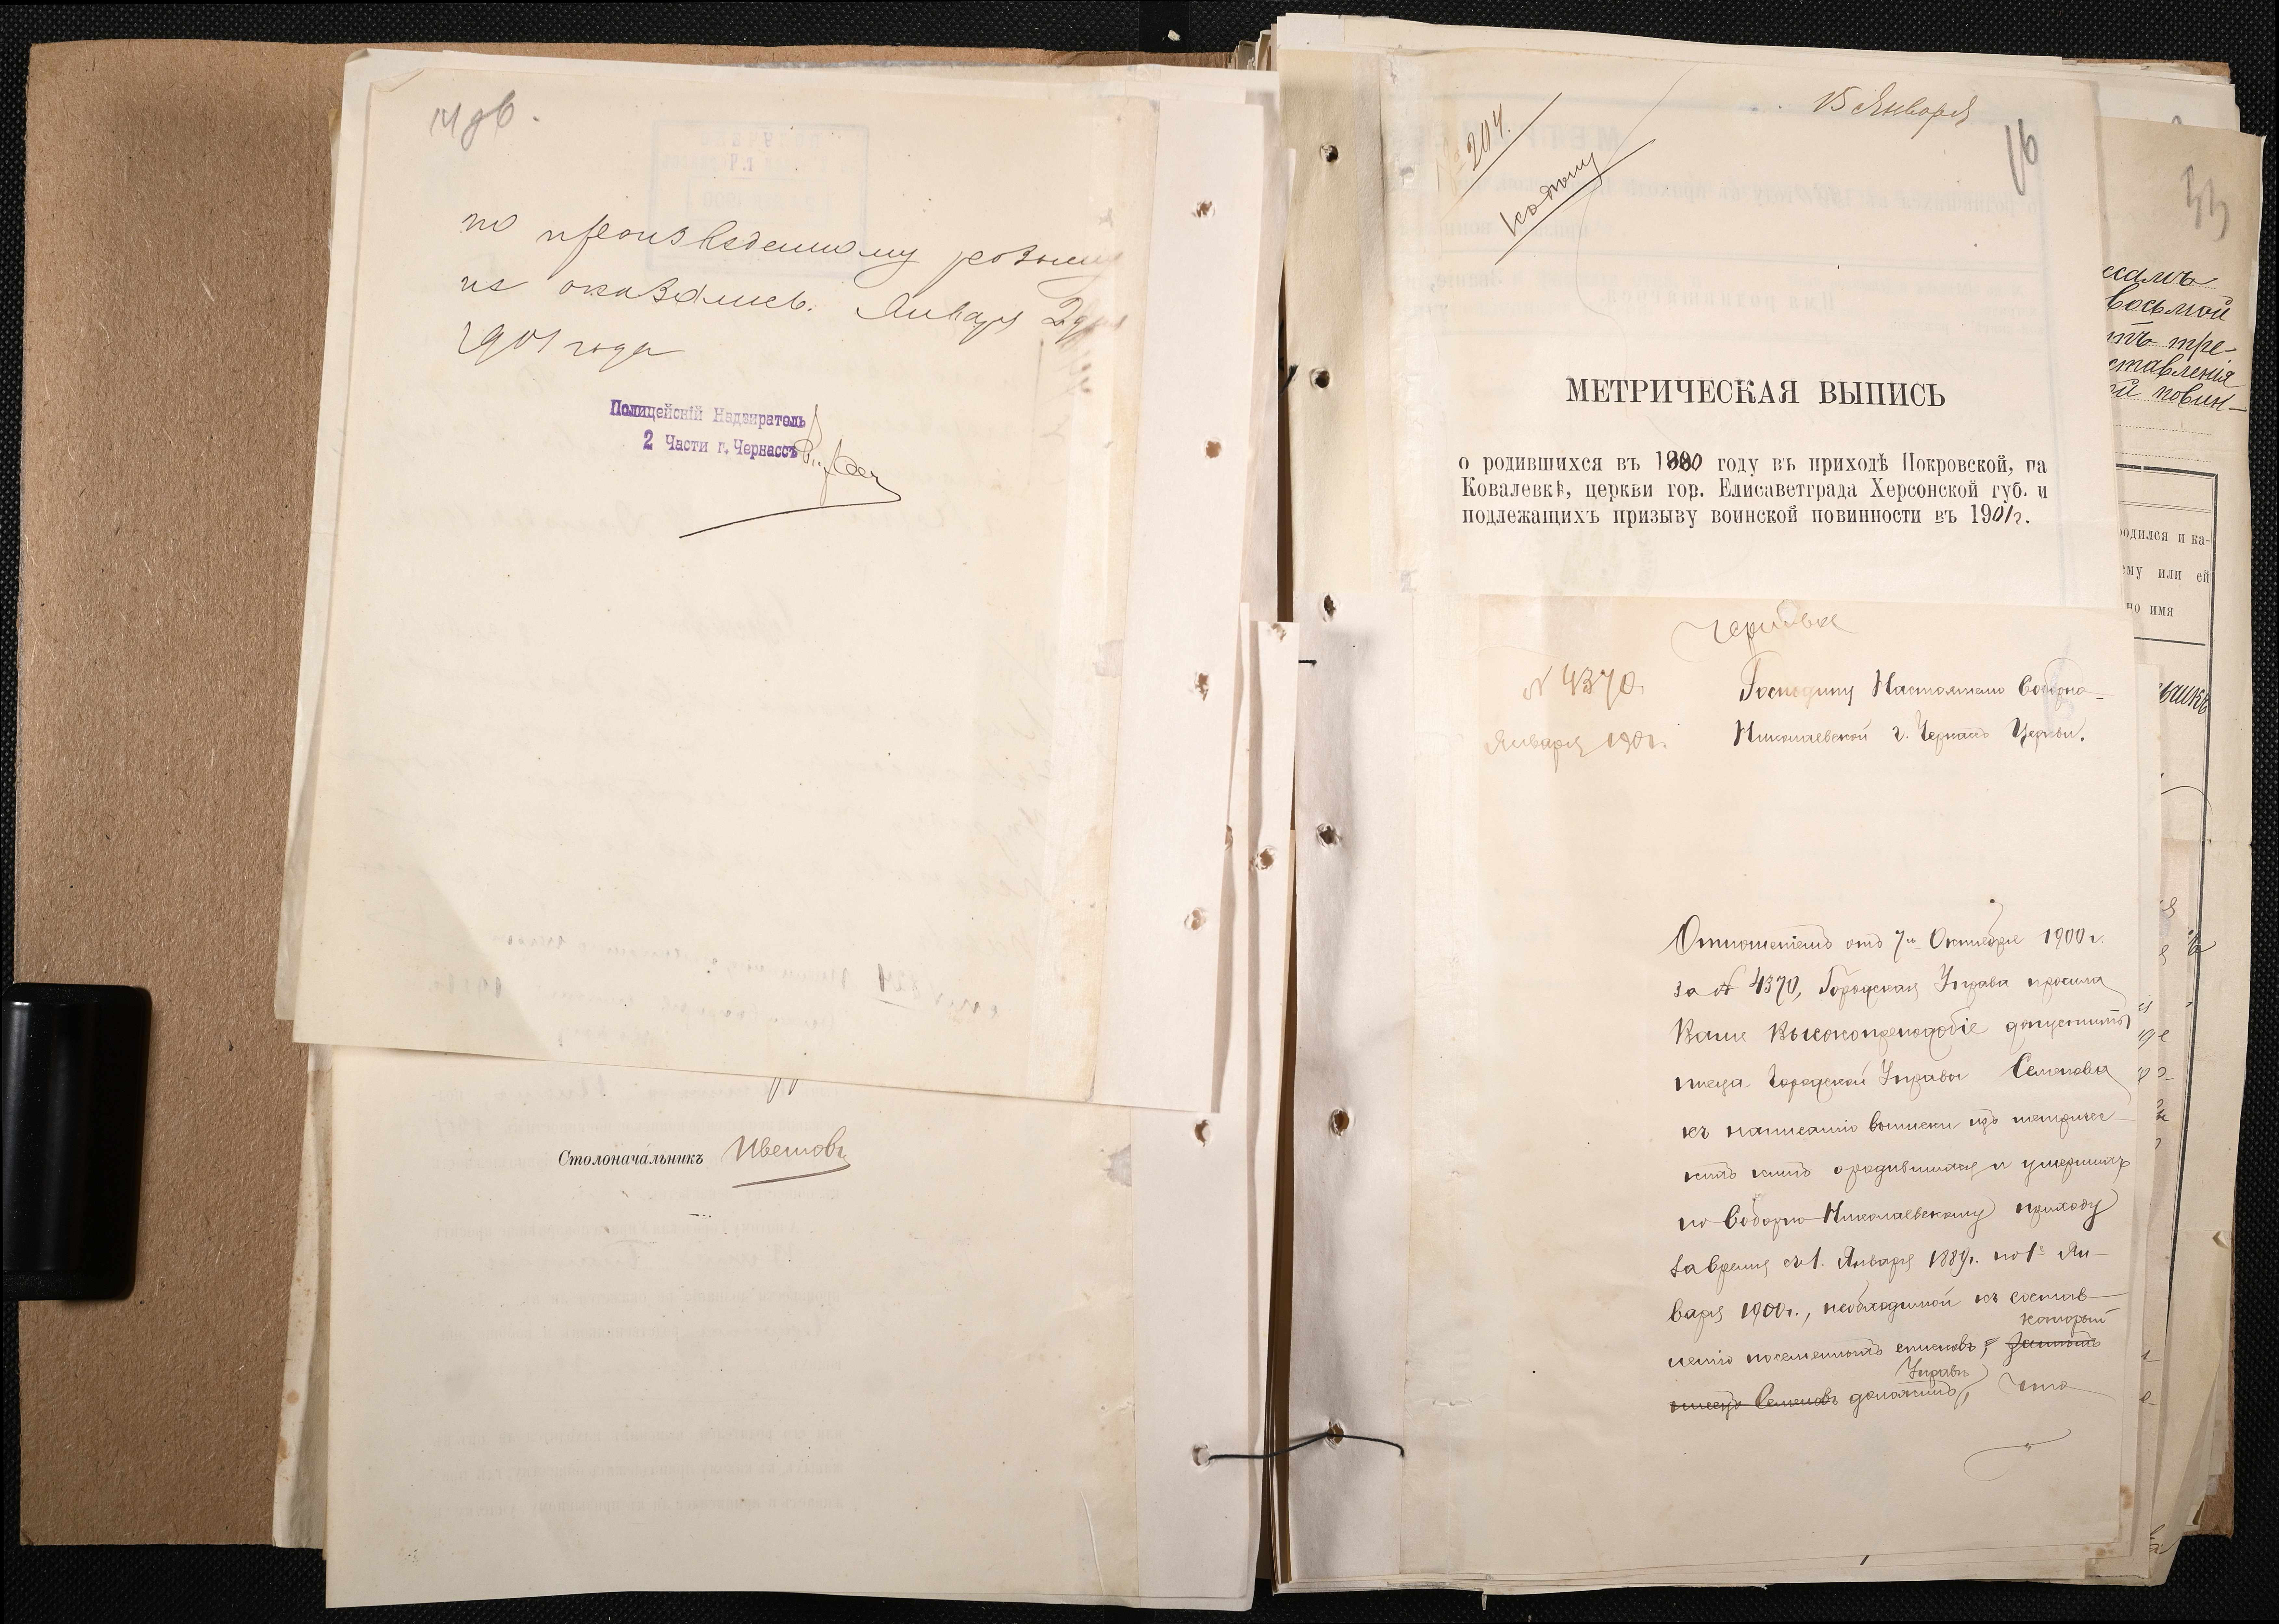 14 об.
по произведенному розыску
не оказались. Января 2 дня
1901 года
Полицейскій Надзиратель
2 Части г. Черкассъ
Столоначальникъ
15 Января
№ 204.
16
Копію
МЕТРИЧЕСКАЯ ВЫПИСЬ
о родившихся въ 1880 году въ приходѣ Покровской, на
Ковалевкѣ, церкви гор. Елисаветграда Херсонской губ. и
подлежащихъ призыву воинской повинности въ 1901 г.
№ 4370.
Января 1901.
Господину Настоятелю Соборно-
Николаевской г. Черкассъ Церкви.
Отношеніемъ отъ 7го Октября 1900 г.
за № 4370, Городская Управа просила
Ваше Высокопреподобіе допустить
писца Городской Управы Семенова
къ написанію выписки изъ метричес-
кихъ книгъ о родившихся и умершихъ
по Соборно-Николаевскому приходу
за время съ 1. Января 1889 г. по 1е Ян-
варя 1900 г., необходимой къ состав-
который
ленію посемейныхъ списковъ,
Управѣ
писецъ Семеновъ доложилъ, что
33
восьмой
тъ тре-
ставленія
й повин-
родился и ка-
ему или ей
но имя